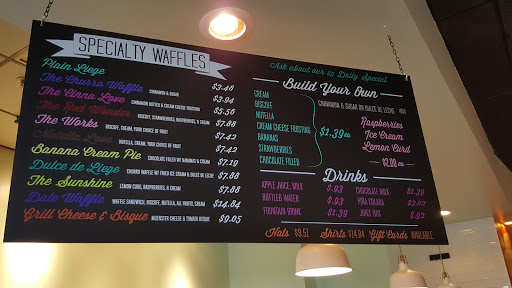 SPECIALTY WAFFLES
Plain Liege $3.48
The Churro Waffle CINNAMON & SUGAR $3.94
The Cinna Love CINNAMON BUTTER & CREAM CHEESE FROSTING $5.56
The Red Wonder BISCOFF, STRAWBERRIES, RASPBERRIES, & CREAM $7.88
The Works BISCOFF, CREAM, YOUR CHOICE OF FRUIT $7.42
Nutella Love NUTELLA, CREAM, YOUR CHOICE OF FRUIT $7.42
Banana Cream Pie CHOCOLATE FILLED W/ BANANAS & CREAM $7.19
Dulce de Liege CHURRO WAFFLE W/ FRIED ICE CREAM & DULCE DE LECHE $7.88
The Sunshine LEMON CURD, RASPBERRIES, & CREAM $7.88
Date Waffle WAFFLE SANDWICH, BISCOFF, NUTELLA, ALL FRUITS, CREAM $14.84
Grill Cheese & Bisque MUENSTER CHEESE & TOMATO BISQUE $9.05
Ask about our $5 Daily Special
Build Your Own
CREAM
BISCOFF
NUTELLA
CREAM CHEESE FROSTING
BANANAS
STRAWBERRIES
CHOCOLATE FILLED
$1.39 EA
CINNAMON & SUGAR OR DULCE DE LECHE 46¢
Raspberries
Ice Cream
Lemon Curd
Drinks
APPLE JUICE, MILK $.93
BOTTLED WATER $.93
FOUNTAIN DRINK $1.39
CHOCOLATE MILK $1.39
PIÑA COLADA
JUICE BOX $.93
Hats $9.51 Shirts $14.84 Gift Cards AVAILABLE